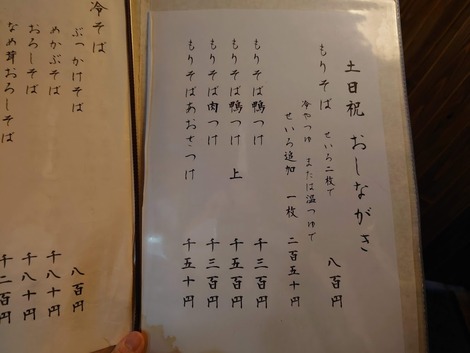 土日祝 おしながき
もりそば せいろ二枚で 八百円
冷やつゆ または温つゆで
せいろ追加 一枚 二百五十円
もりそば鴨つけ 千三百円
もりそば鴨つけ 上 千五百円
もりそば肉つけ 千三百円
もりそばあおさつけ 千五十円
冷そば
ぶっかけそば 八百円
めかぶそば 千八十円
おろしそば 千八十円
なめ茸おろしそば 千二百円